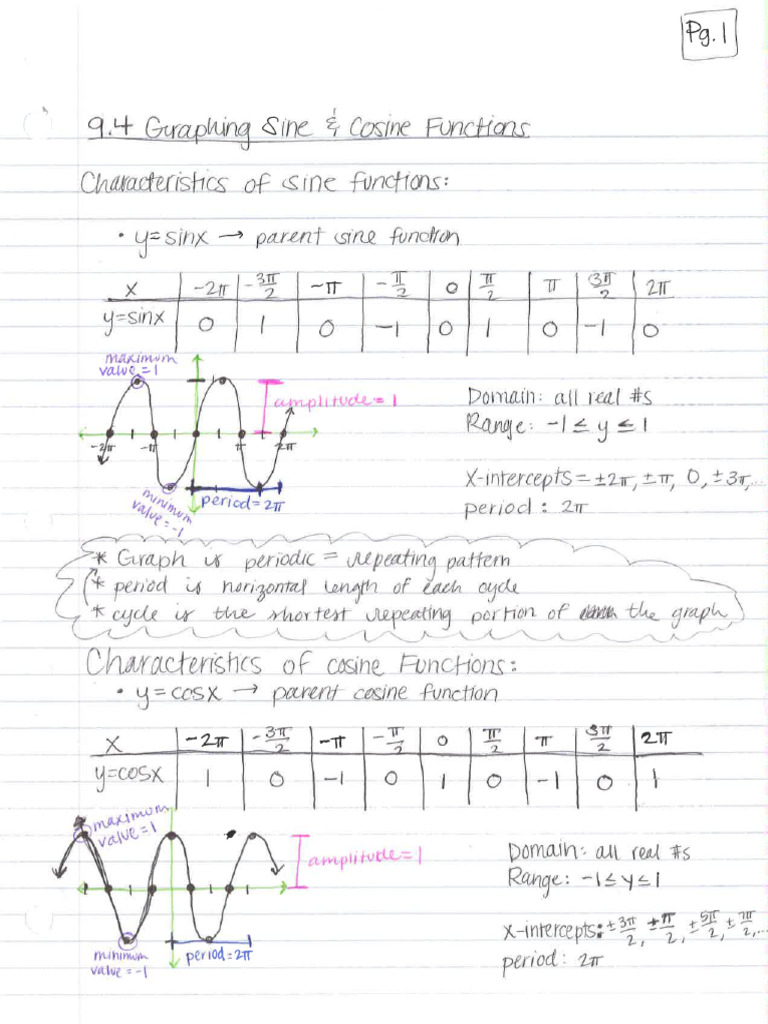 Pg. 1
9.4 Graphing Sine & Cosine Functions
Characteristics of sine functions:
• y=sinx → parent sine function
x -2π -3π/2 -π -π/2 0 π/2 π 3π/2 2π
y=sinx 0 1 0 -1 0 1 0 -1 0
maximum
value=1
1
amplitude=1
Domain: all real #s
Range: -1≤y≤1
-2π -π π 2π
X-intercepts = ±2π, ±π, 0, ±3π,...
minimum
value=-1
period=2π
period: 2π
* Graph is periodic = repeating pattern
* period is horizontal length of each cycle
* cycle is the shortest repeating portion of the graph
Characteristics of cosine Functions:
• y=cosx → parent cosine function
x -2π -3π/2 -π -π/2 0 π/2 π 3π/2 2π
y=cosx 1 0 -1 0 1 0 -1 0 1
maximum
value=1
amplitude=1
Domain: all real #s
Range: -1≤y≤1
x-intercepts: ±3π/2, ±π/2, ±5π/2, ±7π/2,...
minimum
value=-1
period=2π
period: 2π